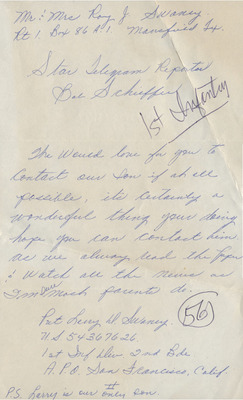 Mr. & Mrs Roy J Swaney
Rt 1 Box 86 A1 Mansfield Tx.
Star Telegram Reporter
Bob Schieffer
1st Infantry
We would love for you to
contact our Son if at all
possible, it's certainly a
wonderful thing your doing
hope you can contact him
as we always read the paper
& watch all the news as
I'm sure most parents do.
Pvt Larry D Swaney
US 54367626
56
1st Inf Div 2nd Bde
A.P.O. San Francisco, Calif
P.S. Larry is our only son.